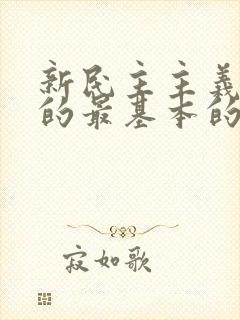 新民主主义
的最基本的
寂如歌